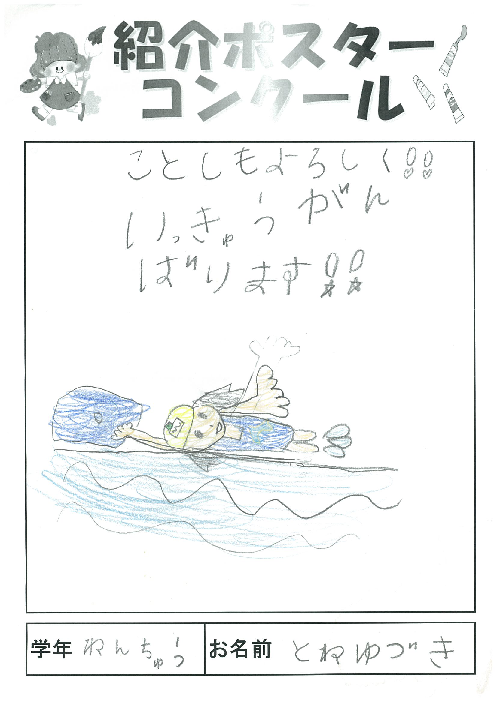 紹介ポスター
コンクール
ことしもよろしく!!
いっきゅうがん
ばります!!
学年 ねんちゅう お名前 とねゆづき